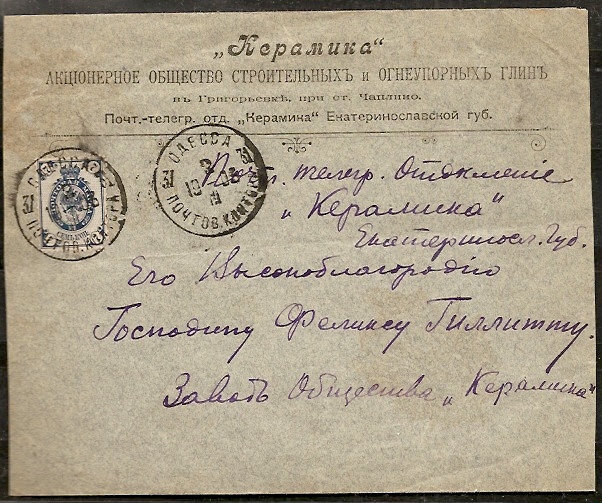 „Керамика“
АКЦІОНЕРНОЕ ОБЩЕСТВО СТРОИТЕЛЬНЫХЪ и ОГНЕУПОРНЫХЪ ГЛИНЪ
въ Григорьевкѣ, при ст. Чаплино.
Почт.-телегр. отд. „Керамика“ Екатеринославской губ.
ОДЕССА
31 31
ПОЧТОВ. КОНТОРА
ОДЕССА
31
ПОЧТОВ. КОНТОРА
СЕМЬ КОП.
Поч. телегр. Отдѣленіе
„Керамика“
Екатериносл. Губ.
Его Высокоблагородію
Господину Феликсу Гиллитту.
Заводъ Общества „Керамика“